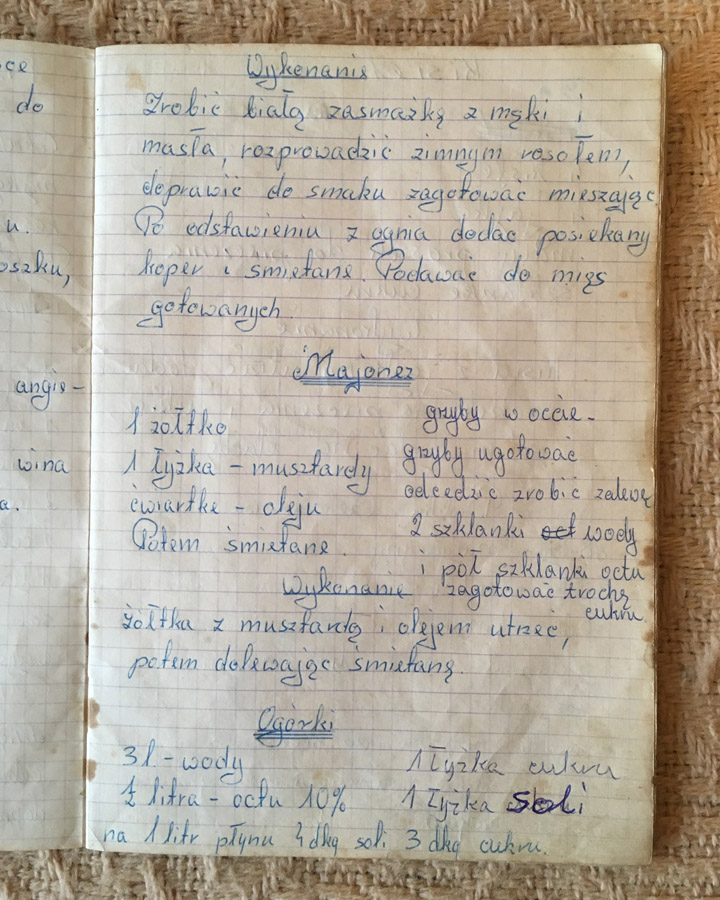 do
u.
oszku,
angie-
wina
a.
Wykonanie
Zrobić białą zasmażkę z mąki i
masła, rozprowadzić zimnym rosołem,
doprawić do smaku zagotować mieszając
Po odstawieniu z ognia dodać posiekany
koper i śmietanę Podawać do mięs
gotowanych.
Majonez
1 żółtko
1 łyżka - musztardy
ćwiartkę - oleju
Potem śmietanę.
grzyby w occie -
grzyby ugotować
odcedzić zrobić zalewę
2 szklanki oct wody
i pół szklanki octu
zagotować trochę
cukru.
Wykonanie
żółtka z musztardą i olejem utrzeć,
potem dolewając śmietanę.
Ogórki
3 l - wody 1 łyżka cukru
litra - octu 10% 1 łyżka soli
na 1 litr płynu 4 dkg soli 3 dkg cukru.